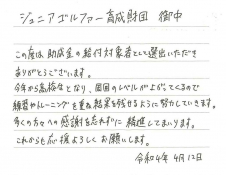 ジュニアゴルファー育成財団 御中
この度は助成金の給付対象者として選出いただき
ありがとうございます。
今年から高校生となり、周囲のレベルが上がってくるので
練習やトレーニングを重ね結果を残せるように努力していきます。
多くの方々への感謝を忘れずに精進してまいります。
これからも応援よろしくお願いします。
令和4年4月12日